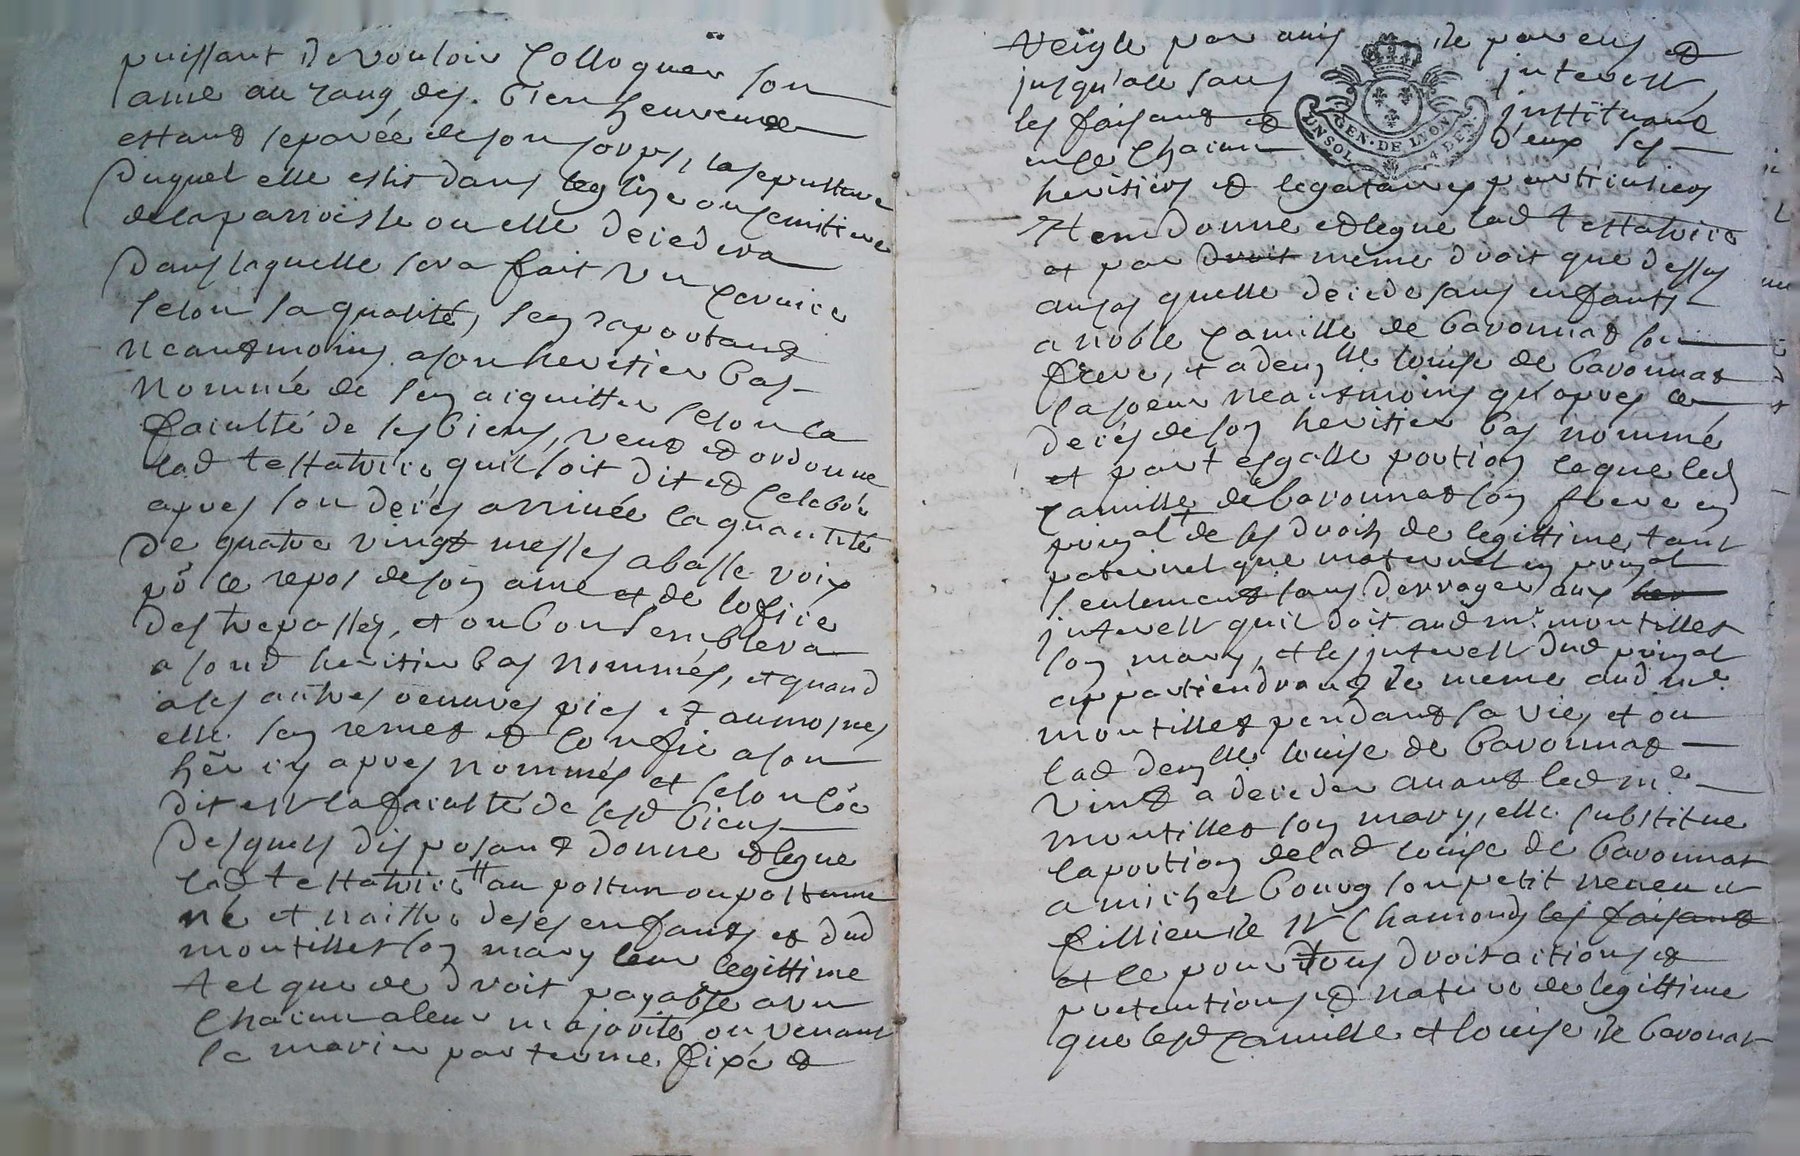 puissant de vouloir Colloquer son
ame au rang des bien heureuse
estant separée de son corps, la sepulture
duquel elle eslit dans leglize ou cemitiere
de la parroisse ou elle decedera
dans laquelle sera fait un service
selon sa qualité, sen raportant
neantmoins a son heritier bas
nommé de sen aiquitter selon la
faculté de ses biens, veut et ordonne
lad testatrice quil soit dit et celebré
apres son deces arrivée la quantité
de quatre vingt messes a basse voix
po le repos de son ame et de lofice
des trepasses, et ou bon semblera
a sond heritier bas nommés, et quand
a ses autres oeuvres pies et aumosnes
elle sen remet et confie a son
her cy apres nommés et selon coe
dit est la faculté de sesd biens
desquels disposant donne et legue
lad testatrice au postum ou postume
né et naittre de ses enfants et dud
montillet son mary leur legittime
tel que de droit payable a un
chacun a leur majorité ou venant
se marier par terme fixé et
reigle par amis et parens et
jusqu'alle sans interest
les faisant et instituant
un chacun d'eux ses
heritiers et legataires particuliers
Item donne et legue lad testatrice
et par droit meme droit que dessus
au cas quelle decede sans enfants
a noble Camille de Bavonnat son
frere, et a demlle louise de Bavonnat
sa soeur neantmoins qu'apres le
deces de son heritier bas nommé
et par esgalle portion leque led
Camille de bavonnat son frere en
poinal de ses droits de legittime tant
paternel que maternel en poinal
seulement sans derroger aux her
interest quil doit aud mr montillet
son mary, et les interest dud poinal
appartiendront de meme aud me
montillet pendant sa vie, et ou
lad demlle louise de Bavonnat
vint a deceder avant led me
montillet son mary, elle substitue
la portion de lad louise de Bavonnat
a michel Bourg son petit neveu et
fillieu de st Chamond les faisant
et ce pour tous droits actions et
pretentions et nature de legittime
que lesd Camille et louise de Bavonat
GEN. DE LYON
UN SOL 4 DEN.